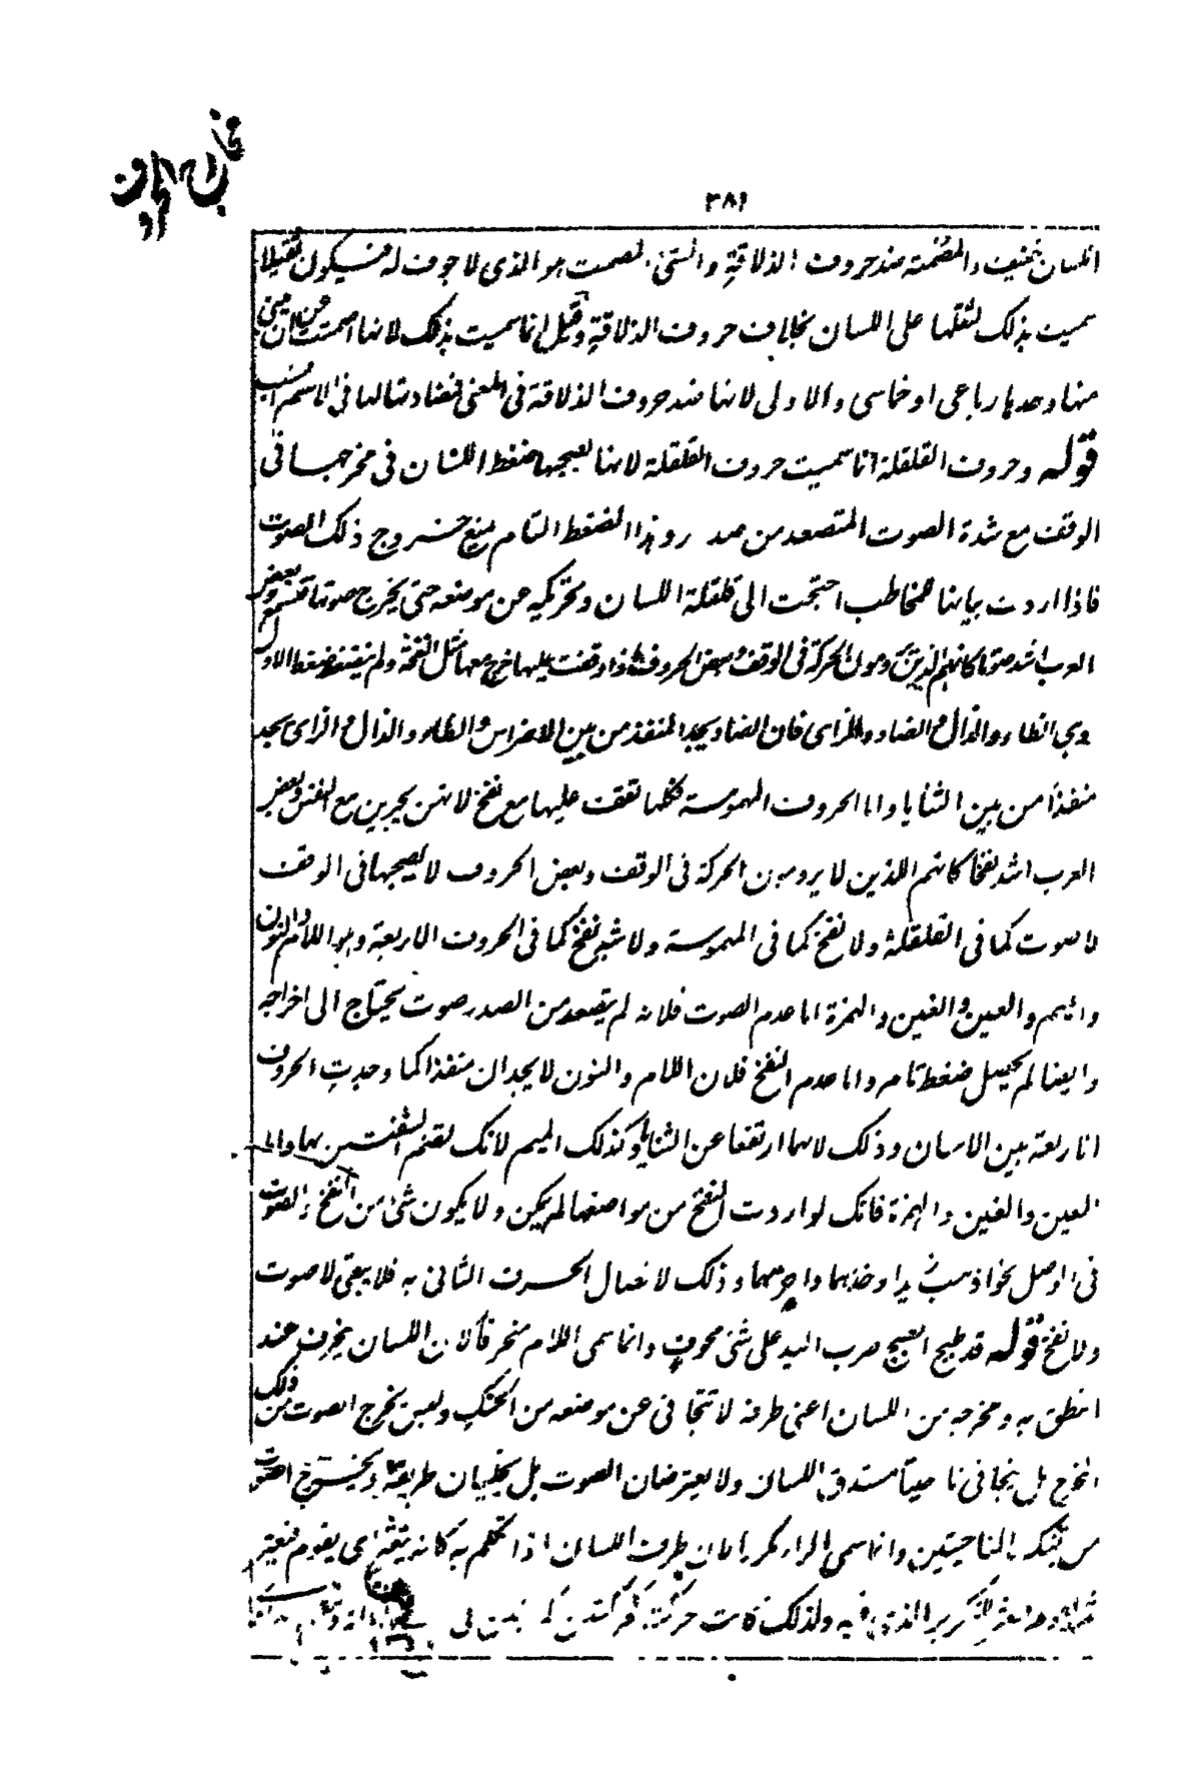 مخارج الحروف
٣٨٩
اللسان خفيف والمصمتة ضد حروف الذلاقة والشئ المصمت هو الذى لا جوف له فيكون ثقيلا
سميت بذلك لثقلها على اللسان بخلاف حروف الذلاقة وقيل انما سميت بذلك لانها اصمتت عن ان يبنى
منها وحدها رباعى او خماسى والاولى لانها ضد حروف الذلاقة فى المعنى فمضادتها لها فى الاسم انسب
قوله وحروف القلقلة انما سميت حروف القلقلة لانها يصحبها ضغط اللسان فى مخرجها فى
الوقف مع شدة الصوت المتصعد من الصدر وهذا الضغط التام يمنع خروج ذلك الصوت
فاذا اردت بيانها للمخاطب احتجت الى قلقلة اللسان وتحريكه عن موضعه حتى يخرج صوتها فتسمع وبعض
العرب اشد صوتا كانهم الذين يرومون الحركة فى الوقف وبعض الحروف اذا وقفت عليها خرج معها مثل النفخة ولم ينضغط ضغط الاول
وهى الظاء والذال والضاد والزاى فان الضاد يجد المنفذ من بين الاضراس والظاء والذال والزاى يجد
منفذا من بين الثنايا واما الحروف المهموسة فكلها تقف عليها مع نفخ لانهن يجرين مع النفس وبعض
العرب اشد نفخا كانهم الذين لا يرومون الحركة فى الوقف وبعض الحروف لا يصحبها فى الوقف
لا صوت كما فى القلقلة ولا نفخ كما فى المهموسة ولا شبه نفخ كما فى الحروف الاربعة وهو اللام والنون
والميم والعين والغين والهمزة اما عدم الصوت فلانه لم يتصعد من الصدر صوت يحتاج الى اخراجه
وايضا لم يحصل ضغط تام واما عدم النفخ فلان اللام والنون لا يجدان منفذا كما وجدت الحروف
الاربعة بين الاسنان وذلك لانهما ارتفعا عن الثنايا وكذلك الميم لانك تضم الشفتين بها واما
العين والغين والهمزة فانك لو اردت النفخ من مواضعها لم يكن ولا يكون شئ من النفخ والصوت
فى الوصل نحو اذهب زيدا وخذهما واحرسهما وذلك لاتصال الحرف الثانى به فلا يبقى لا صوت
ولا نفخ قوله قد طبج الطبج ضرب اليد على شئ مجوف وانما سمى اللام منحرفا لان اللسان ينحرف عند
النطق به ومخرجه من اللسان اعنى طرفه لا تتجافى عن موضعه من الحنك وليس يخرج الصوت من ذلك
المخرج بل يتجافى ناحيتا مستدق اللسان ولا يعترضان الصوت بل يخليان طريقه ويخرج الصوت
من تينك الناحيتين وانما سمى الراء مكررا لان طرف اللسان اذا تكلم به كانه يتعثر اى يقوم فيعثر
للتكرير الذى فيه ولذلك كانت حركته كحركتين كما تبين فى